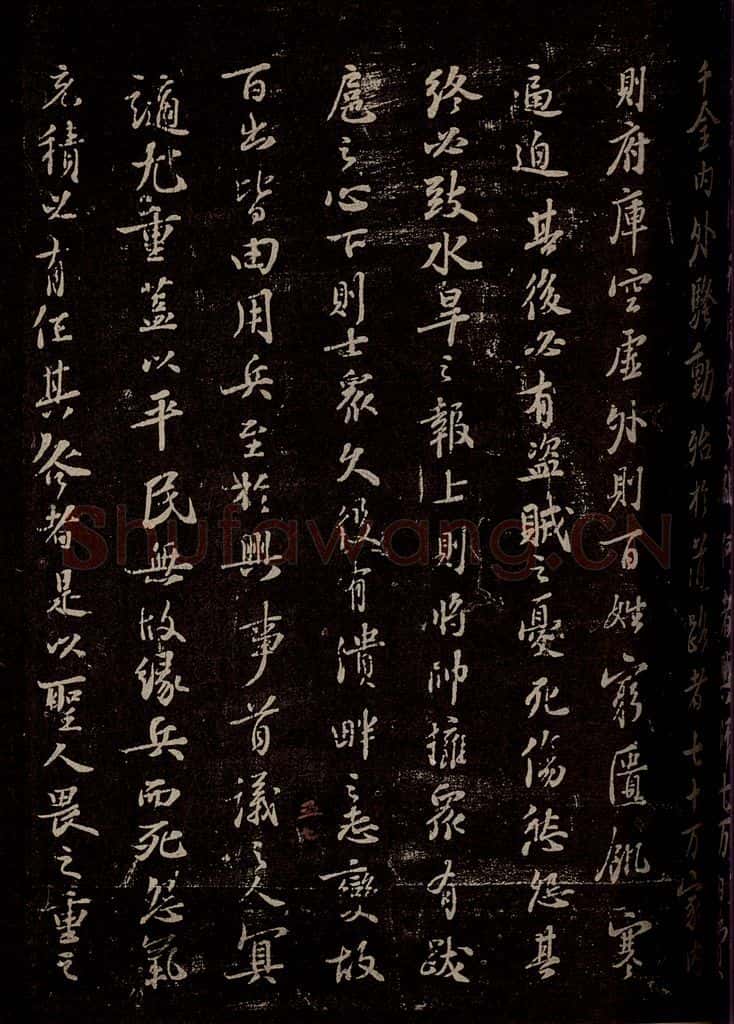 千金内外騷動殆於道路者七十万家内
則府庫空虛外則百姓窮匱飢寒
逼迫其後必有盜賊之憂死傷愁怨其
終必致水旱之報上則將帥擁眾有跋
扈之心下則士眾久役有潰畔之志變故
百出皆由用兵至於興事首議之人冥
謫尤重蓋以平民無故緣兵而死怨氣
充積必有任其咎者是以聖人畏之重之
Shufawang.CN